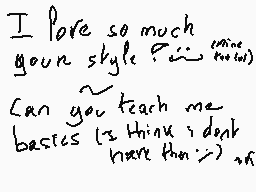 I love so much
your style? :) (mine
too lol)
Can you teach me
basics (I think i dont
have them :))